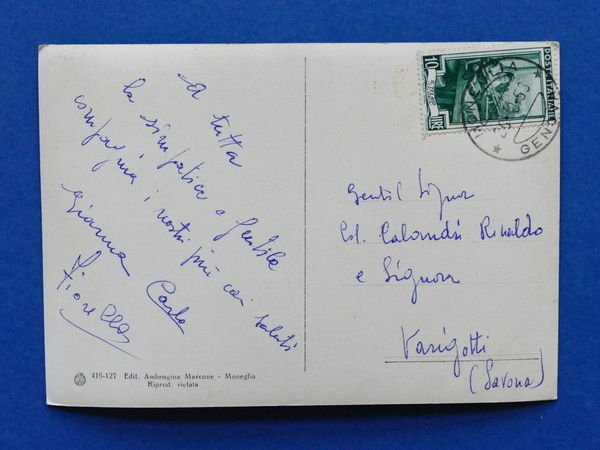 A tutta
la simpatica e gentile
compagnia i nostri più cari saluti
Gianna Carlo
Fiorella
416-127 Edit. Ambrogina Marcone - Moneglia
Riprod. vietata
10
LIRE
POSTE ITALIANE
MONEGLIA
GENOVA
Gentil Signor
Col. Calandri Rinaldo
e Signora
Varigotti
(Savona)